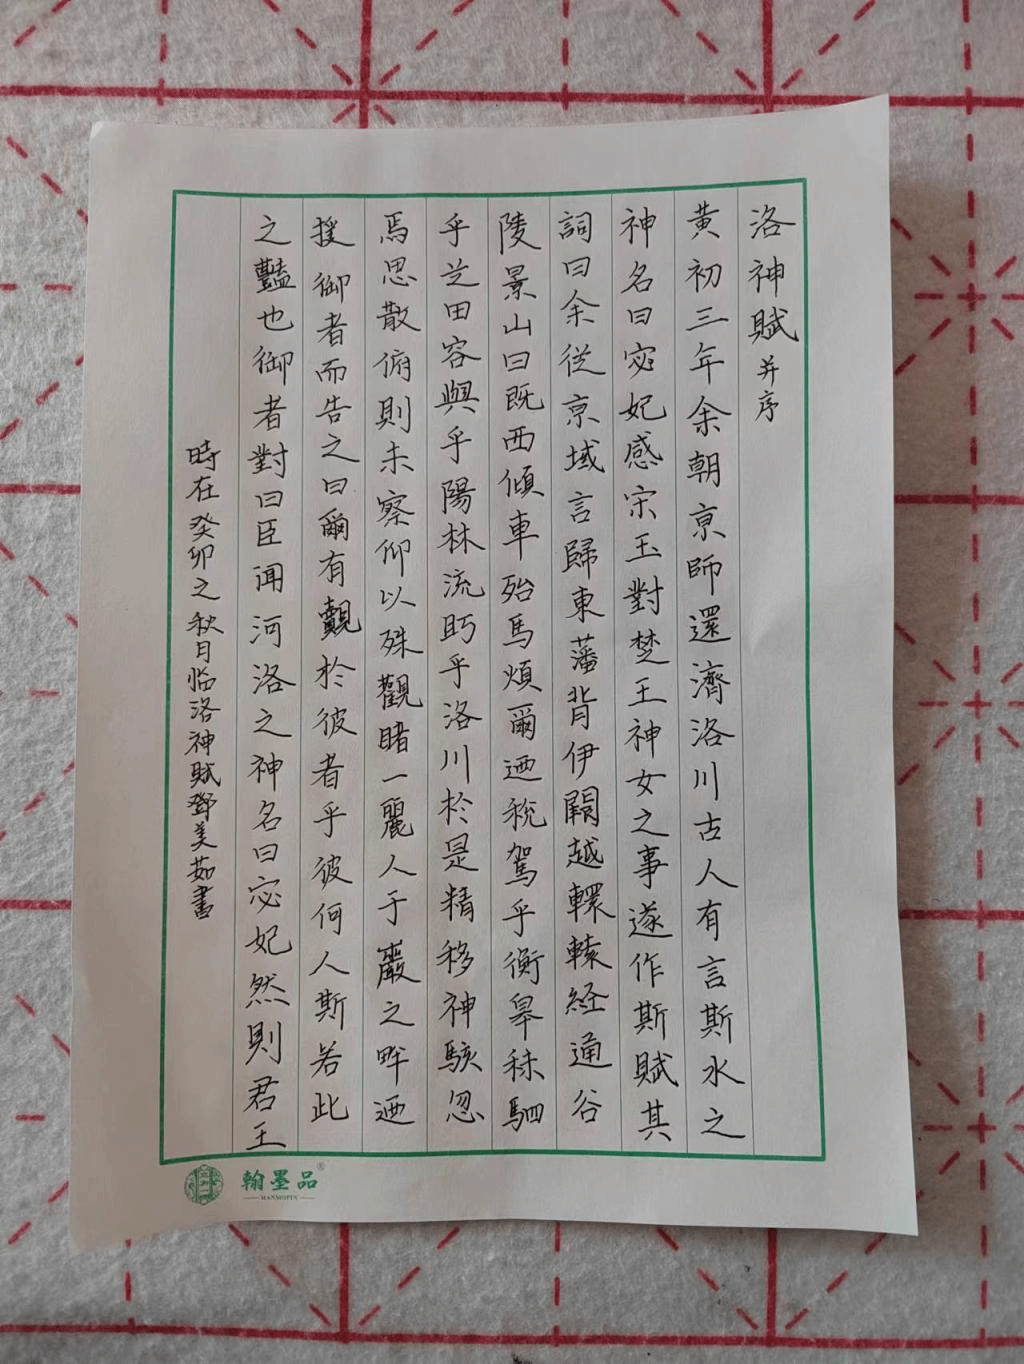 洛神賦并序
黃初三年余朝京師還濟洛川古人有言斯水之
神名曰宓妃感宋玉對楚王神女之事遂作斯賦其
詞曰余從京域言歸東藩背伊闕越轘轅経通谷
陵景山曰既西傾車殆馬煩爾迺稅駕乎衡皋秣駟
乎芝田容與乎陽林流眄乎洛川於是精移神駭忽
焉思散俯則未察仰以殊觀睹一麗人于巖之畔迺
援御者而告之曰爾有觀於彼者乎彼何人斯若此
之豔也御者對曰臣闻河洛之神名曰宓妃然則君王
時在癸卯之秋月临洛神賦鄧美茹書
翰墨品®
HANMOPIN